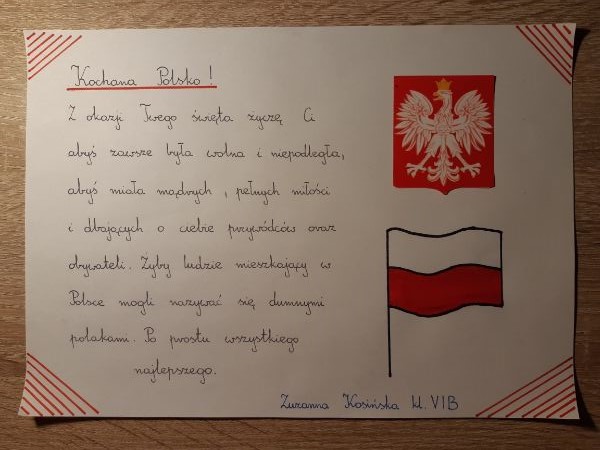 Kochana Polsko!
Z okazji Twego święta życzę Ci
abyś zawsze była wolna i niepodległa,
abyś miała mądrych, pełnych miłości
i dbających o ciebie przywódców oraz
obywateli. Żyby ludzie mieszkający w
Polsce mogli nazywać się dumnymi
polakami. Po prostu wszystkiego
najlepszego.
Zuzanna Kosińska kl. VIB